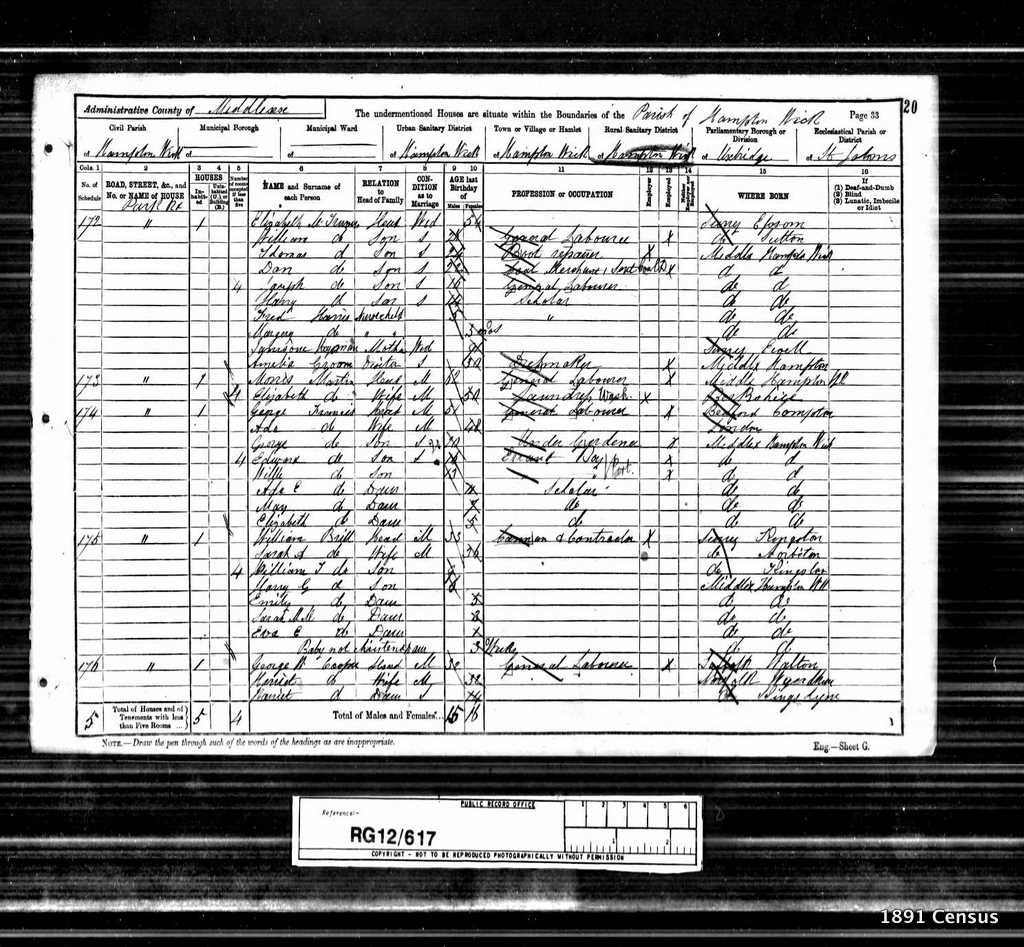 Administrative County of Middlesex
The undermentioned Houses are situate within the Boundaries of the Parish of Hampton Wick
Page 33
20
Civil Parish
Municipal Borough
Municipal Ward
Urban Sanitary District
Town or Village or Hamlet
Rural Sanitary District
Parliamentary Borough or Division
Ecclesiastical Parish or District
of Hampton Wick
of
of
of Hampton Wick
of Hampton Wick
of Hampton Wick
of Uxbridge
of St Johns
Cols. 1 2 3 4 5 6 7 8 9 10 11 12 13 14 15 16
No. of Schedule
ROAD, STREET, &c., and No. or NAME of HOUSE
HOUSES
Inhabited
Uninhabited (U.) or Building (B.)
Number of rooms occupied if less than five
NAME and Surname of each Person
RELATION to Head of Family
CONDITION as to Marriage
AGE last Birthday of
Males Females
PROFESSION or OCCUPATION
Employer
Employed
Neither Employer nor Employed
WHERE BORN
If (1) Deaf-and-Dumb (2) Blind (3) Lunatic, Imbecile or Idiot
Park Rd
172 " 1 Elizabeth Head Wid 54 Epsom
William do Son S General Labourer X do Sutton
Thomas d Son S Boot repairer X Middlx Hampton Wick
Dan do Son S Merchant X d d
4 Joseph do Son S General Labourer do d
Harry d Son S Scholar do do
Fred Harris 5 " do do
Margery do " " 3 do do
Mother Wid Surrey Ewell
Amelia Groom Visitor S 50 Dressmaker X Middlx Hampton
173 " 1 Morris Martin Head M General Labourer X Middlx Hampton
4 Elizabeth do " Wife M 50 Laundress Wash. X
174 " 1 George Head M 51 General Labourer X Bedford Compton
Ada do Wife M 48 London
George do Son S Under Gardener X Middlx Hampton Wick
4 Edward do Son S Errand Boy X d d
Willie do Son 13 " X d d
Ada E do Daur Scholar do do
May do Daur do do do
Elizabeth do Daur 5 do do do
175 " 1 William Brill head M 33 Carman & Contractor X Surrey Kingston
Sarah A do Wife M 36 do Norbiton
4 William T do Son do Kingston
Harry G d Son Middlx Hampton Wk
Emily do Daur 5 do do
Sarah M do Daur do do
Eva E do Daur do do
Baby not Christened Daur 3 Weeks d d
176 " 1 George Wm Cooper Head M General Labourer X Suffolk Walton
Harriet do Wife M 32 Norfolk
Harriet d Daur S 14
5
Total of Houses and of Tenements with less than Five Rooms
5 4
Total of Males and Females
15 16
NOTE.—Draw the pen through such of the words of the headings as are inappropriate.
Eng.—Sheet G.
PUBLIC RECORD OFFICE
Reference:-
RG12/617
1 2 3 4 5 6
1 2
COPYRIGHT - NOT TO BE REPRODUCED PHOTOGRAPHICALLY WITHOUT PERMISSION
1891 Census